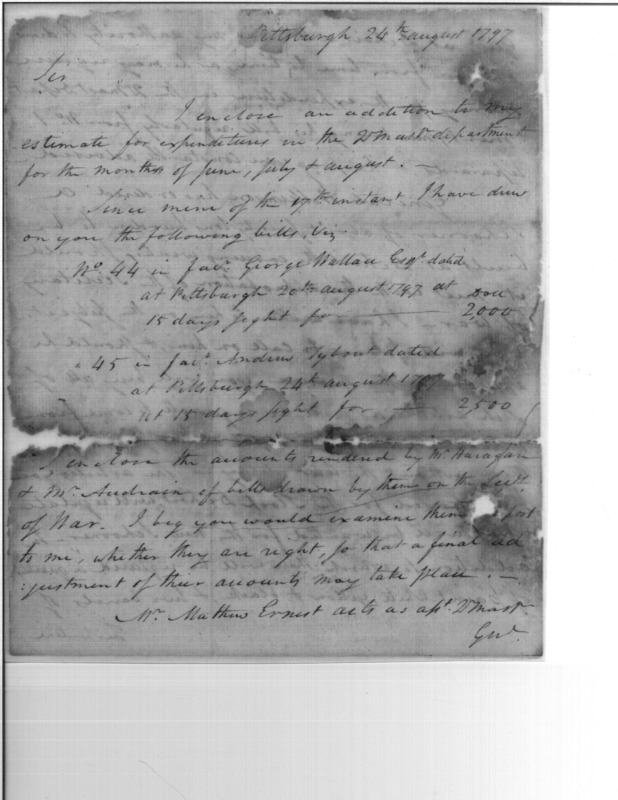 Pittsburgh 24th august 1797
Sir
I enclose an addition to my
estimate for expenditures in the Qr mastr department
for the months of June, July & august. —
Since mine of the 17th instant I have drew
on you the following bills, Viz
No 44 in favr George Wallace Esqr dated
at Pittsburgh 20th august 1797 at
Doll
15 days sight for — 2,000
" 45 in favr Andrew Tybout dated
at Pittsburgh 24th august 1797
at 15 days sight for — 2,500
I enclose the accounts rendered by Mr
& Mr Audrain of bills drawn by them on the Secy
of War. I beg you would examine them
to me, whether they are right, so that a final ad
:justment of their accounts may take place. —
Mr Mathew Ernest acts as asst Qr mastr
Genl